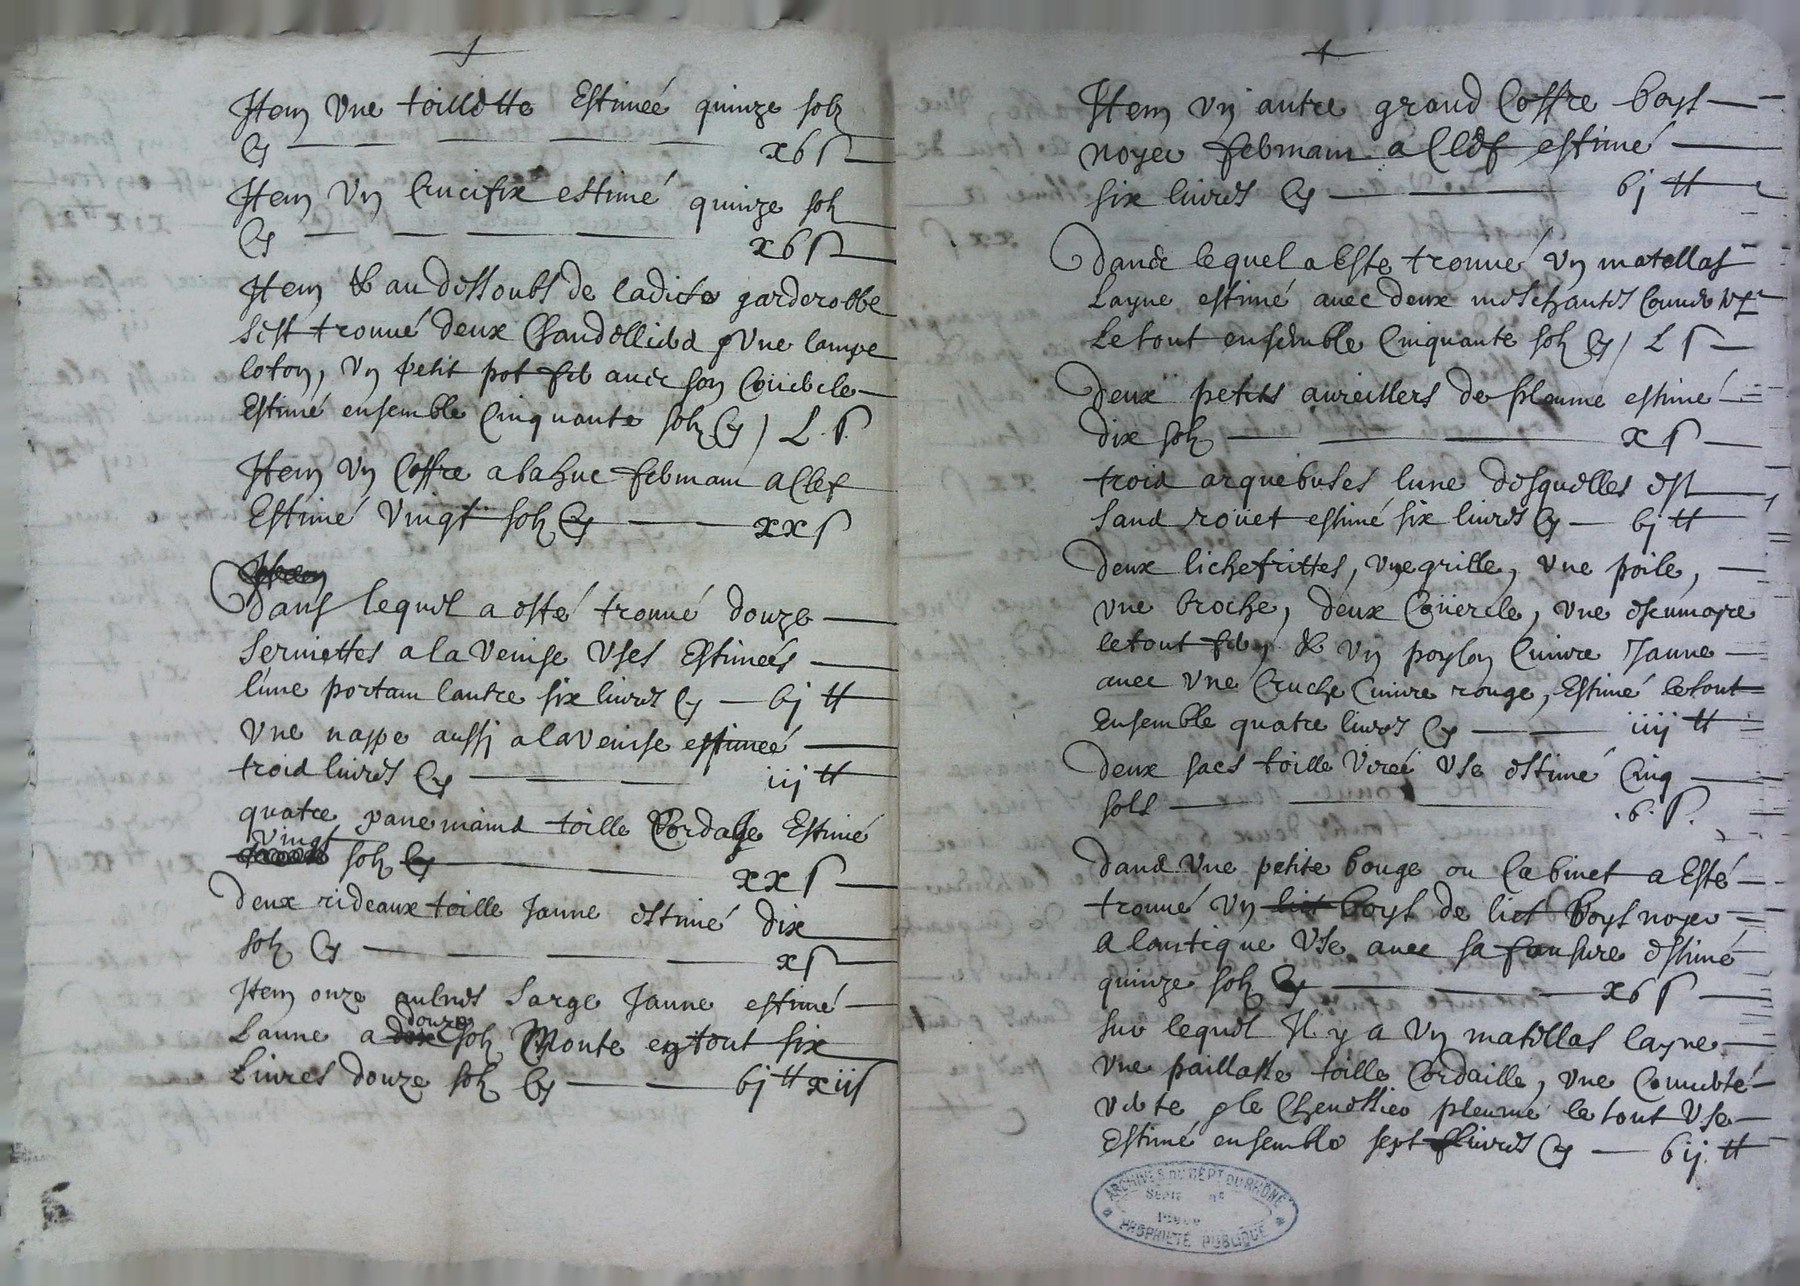 Item une toillette Estimée quinze solz
Cy x6 s
Item un Crucifix estimé quinze solz
Cy x6 s
Item & au dessoubs de ladicte garderobbe
sest trouué deux Chandelliers, une lampe
loton, un petit pot fer auec son Couuercle
Estimé ensemble Cinquante solz Cy / L. s.
Item un Coffre a bahuc fermam a Clef
Estimé vingt solz Cy xx s
Item
dans lequel a esté trouué douze
seruiettes a la Venise uses Estimées
lune portam lautre six liures Cy 6j tt
une nappe aussj a la Venise estimée
troid liures Cy iij tt
quatre panemaind toille Estimé
vingt
solz Cy xx s
Deux rideaux toille Jaune estimé dix
solz Cy x s
Item onze aulnes sarge Jaune estimé
douze
Laune a dix solz Monte en tout six
Liures douze solz Cy 6j tt xij s
Item un autre grand Coffre boys
noyer fermam a Clef estimé
six liures Cy 6j tt
Dans lequel a Este trouué un matellas
Layne estimé auec deux meschantes
Le tout ensemble Cinquante solz Cy / L s
Deux petits aureillers de plume estimé
dix solz x s
troid arquebuses lune desquelles est
sand roüet estimé six liures Cy 6j tt
Deux lichefrittes, une grille, une poile,
une broche, deux Coüercle, une escumoyre
le tout fer, & un poyslon Cuiure Jaune
auec une Cruche Cuiure rouge, Estimé le tout
Ensemble quatre liures Cy iiij tt
Deux sacs toille Virée use estimé Cinq
sols .6. s.
Dand une petite bouge ou Cabinet a Esté
trouué un lict boys de lict Boys noyer
A lantique use auec sa fonsure estimé
quinze solz Cy x6 s
sur lequel Il y a un matellas layne
une paillasse toille Cordaille, une
verte le Cheuessier plume le tout use
Estimé ensemble sept liures Cy 6ij. tt
ARCHIVES DU DEPT DU RHÔNE
SÉRIE N°
PROPRIÉTÉ PUBLIQUE